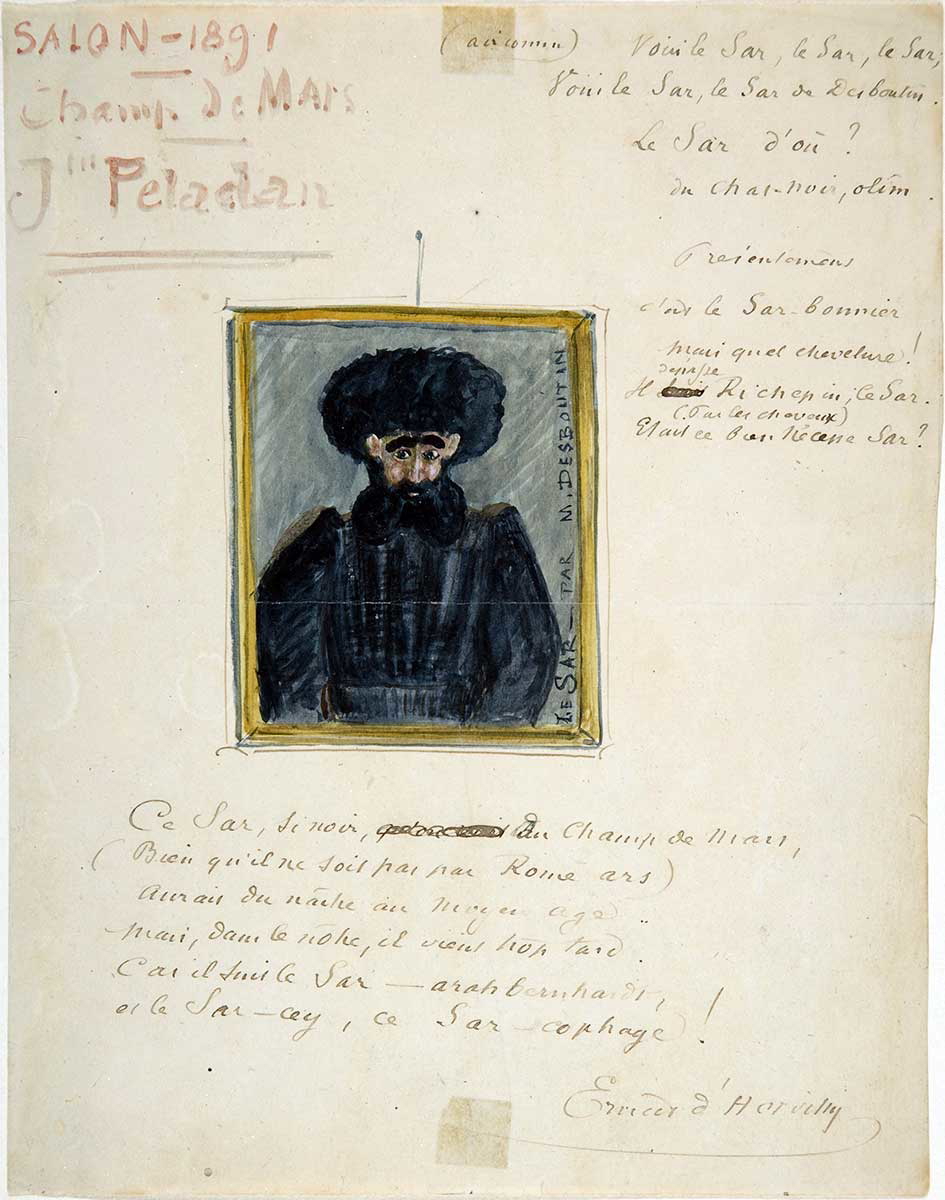 SALON - 1891
Champ de MArs
Jin Peladan
(air connu)
Voici le Sar, le Sar, le Sar,
Voici le Sar, le Sar de Desboutin.
Le Sar d'où ?
du Chat-noir, olim.
Présentement
c'est le Sar-bonnier
Mais quel chevelure !
dépasse
Il Richepin, ce Sar.
(Par les cheveux)
Etait ce bien Nécesse Sar ?
LE SAR - PAR M. DESBOUTIN
Ce Sar, si noir, du Champ de Mars,
(Bien qu'il ne soit pas par Rome ars)
Aurait du naître au moyen age ..
Mais, dans le nôtre, il vient trop tard.
Car il suit le Sar - arah bernhardt,
et le Sar-cey, ce Sar-cophage !
Ernest d'Hervilly